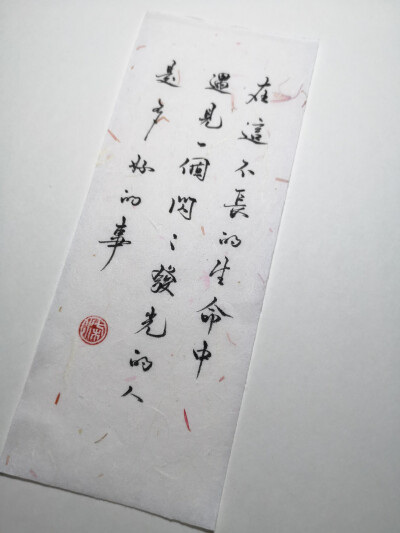 在這不長的生命中
遇見一個閃〻發光的人
是多好的事